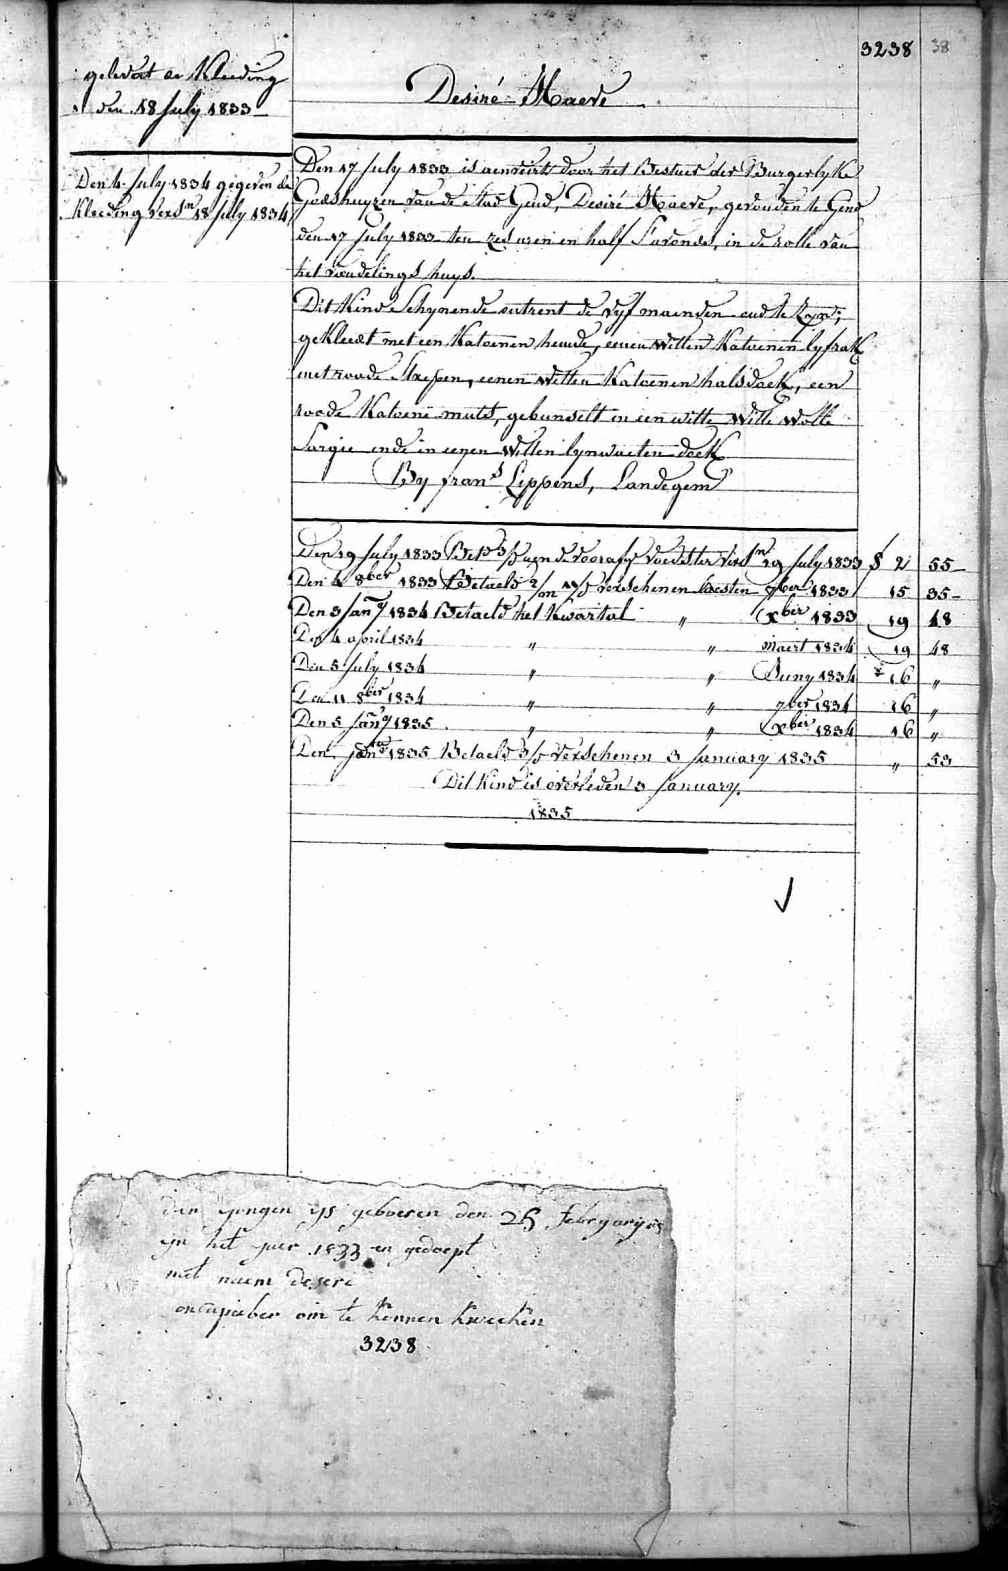 3238 38
gelevert de Kleeding
den 18 July 1833
Desiré Haeve
Den 4 July 1834 gegeven de
Kleeding versn 18 July 1834
Den 17 July 1833 is aenveirt door het Bestuer der Burgerlyke
Godshuyzen van de Stad Gend, Desiré Haeve, gevonden te Gend
den 17 July 1833 ten zes uren en half s'avonds, in de rolle van
het vondelings huys.
Dit Kind Schynende ontrent de vyf maenden oud te zyn;
gekleedt met een Katoenen hemde, eenen witten Katoenen lyfrak
met roode Strepen, eenen witten Katoenen halsdoek, een
roode Katoene muts, gebunselt in een witte witte wolle
Sargie ende in eenen witten lynwaeten doek
By frans Lippens, Landegem
Den 19 July 1833 aen de voorafg voedster versn 19 July 1833 f 2 55
Den 4 8ber 1833 Betaeld 2/m verschenen laesten 7ber 1833 15 35
Den 3 Jany 1834 Betaeld het Kwartael " xber 1833 19 48
Den 4 april 1834 " " maert 1834 19 48
Den 5 July 1834 " " Juny 1834 * 16 "
Den 11 8ber 1834 " " 7ber 1834 16 "
Den 5 Jany 1835 " " xber 1834 16 "
Den 1835 Betaeld 3/d verschenen 3 January 1835 " 53
Dit Kind is overleden 3 January.
1835
den yongen ys geboeren den 26 febryary
yn het yaer 1833 en gedoept
met naem desere
oncapaeber om te konnen kweeken
3238